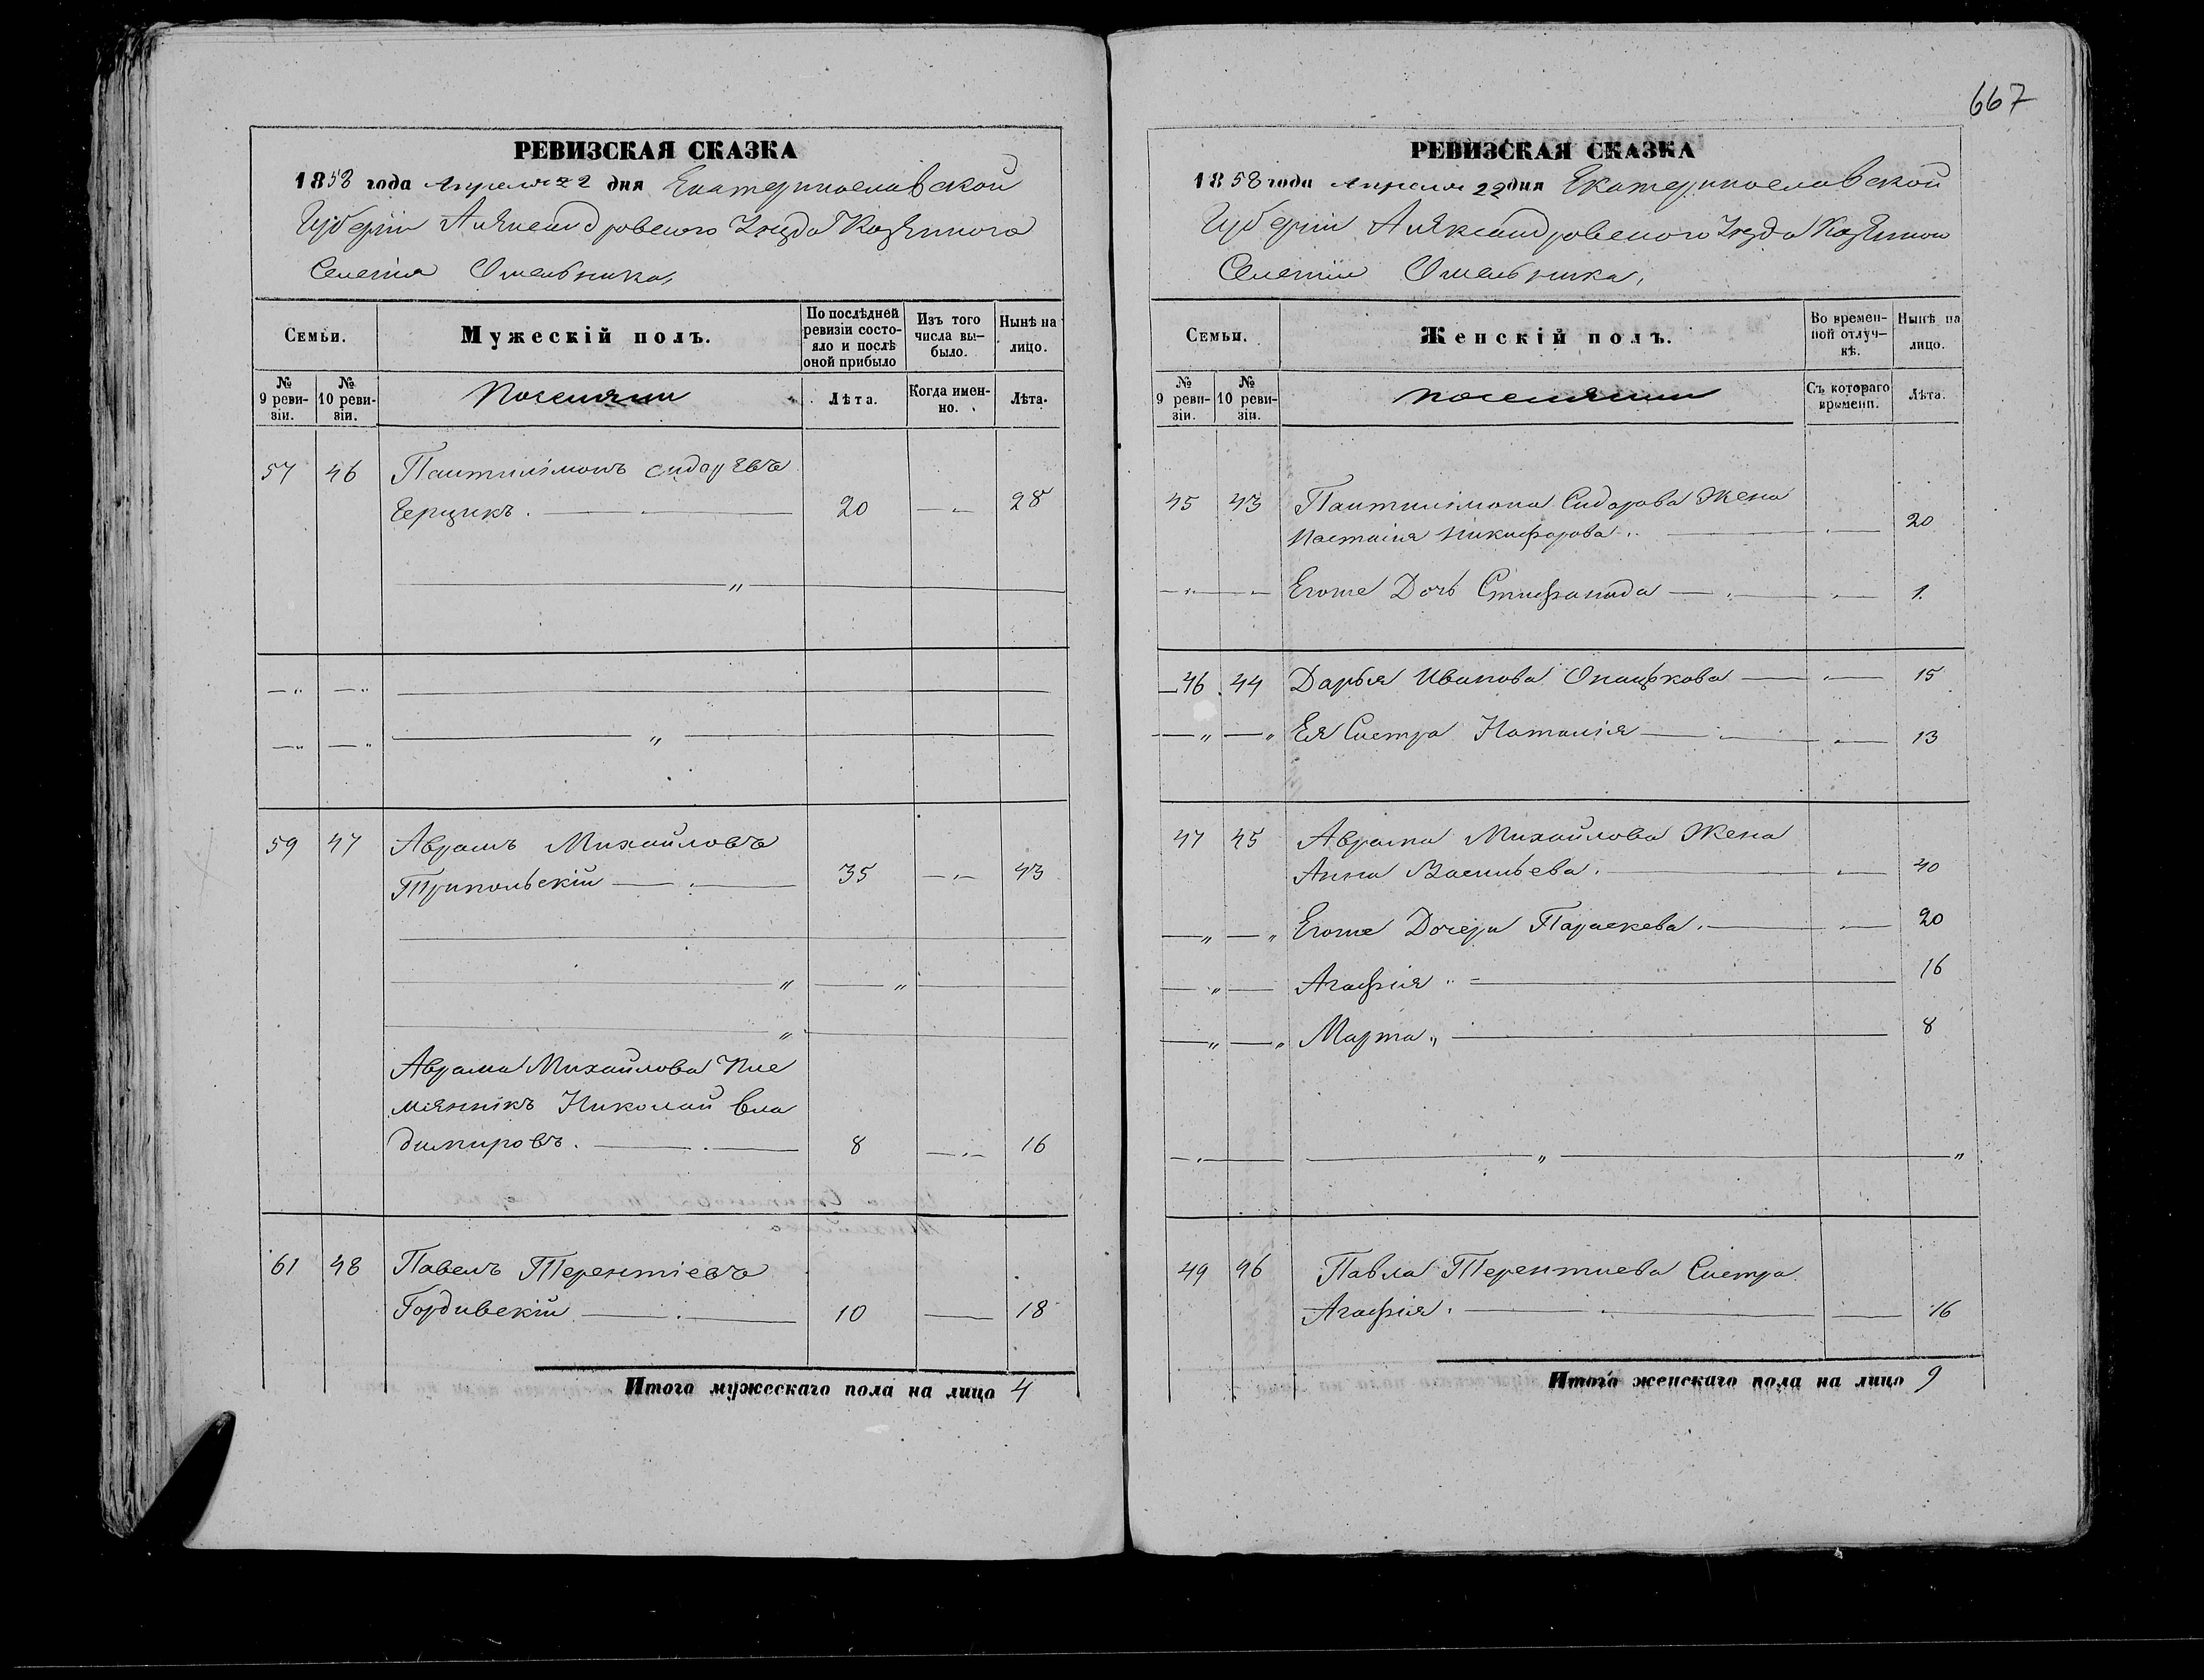 667
РЕВИЗСКАЯ СКАЗКА
1858 года Апреля 22 дня Екатеринославской
Губерніи Александровскаго Уезда Казеннаго
Селенія Омельника,
Семьи.
Мужескій полъ.
По послѣдней ревизіи состояло и послѣ оной прибыло
Изъ того числа вы-было.
Нынѣ на лицо.
№ 9 реви-зіи.
№ 10 реви-зіи.
Поселяни
Лѣта.
Когда имен-но.
Лѣта.
57 46 Пантилімонъ Сидоревъ
Черцикъ. 20 28
59 47 Аврамъ Михайловъ
Трипольскій 35 43
Аврама Михайлова Пле
мянникъ Николай Вла
димировъ. 8 16
61 48 Павелъ Терентіевъ
Гордивскій 10 18
Итого мужескаго пола на лицо 4
РЕВИЗСКАЯ СКАЗКА
1858 года Апреля 22 дня Екатеринославской
Губерніи Александровскаго Уезда Казенного
Селенія Омельника,
Семьи.
Женскій полъ.
Во времен-ной отлуч-кѣ.
Нынѣ на лицо.
№ 9 реви-зіи.
№ 10 реви-зіи.
поселяни
Съ котораго времени.
Лѣта.
45 43 Пантилімона Сидорова Жена
Настасія Никифорова. 20
Егоже Дочь Стифанида 1.
46 44 Дарья Иванова 15
Ея Систра Наталія 13
47 45 Аврама Михайлова Жена
Анна Васильева. 40
Егоже Дочери Параскева. 20
Агафія 16
Марта 8
49 46 Павла Терентиева Систра
Агафія. 16
Итого женскаго пола на лицо 9